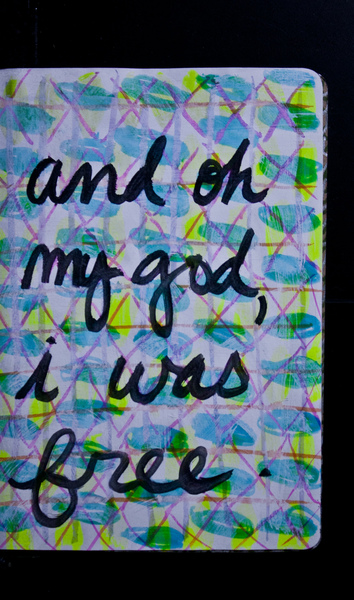 and oh
my god,
i was
free.